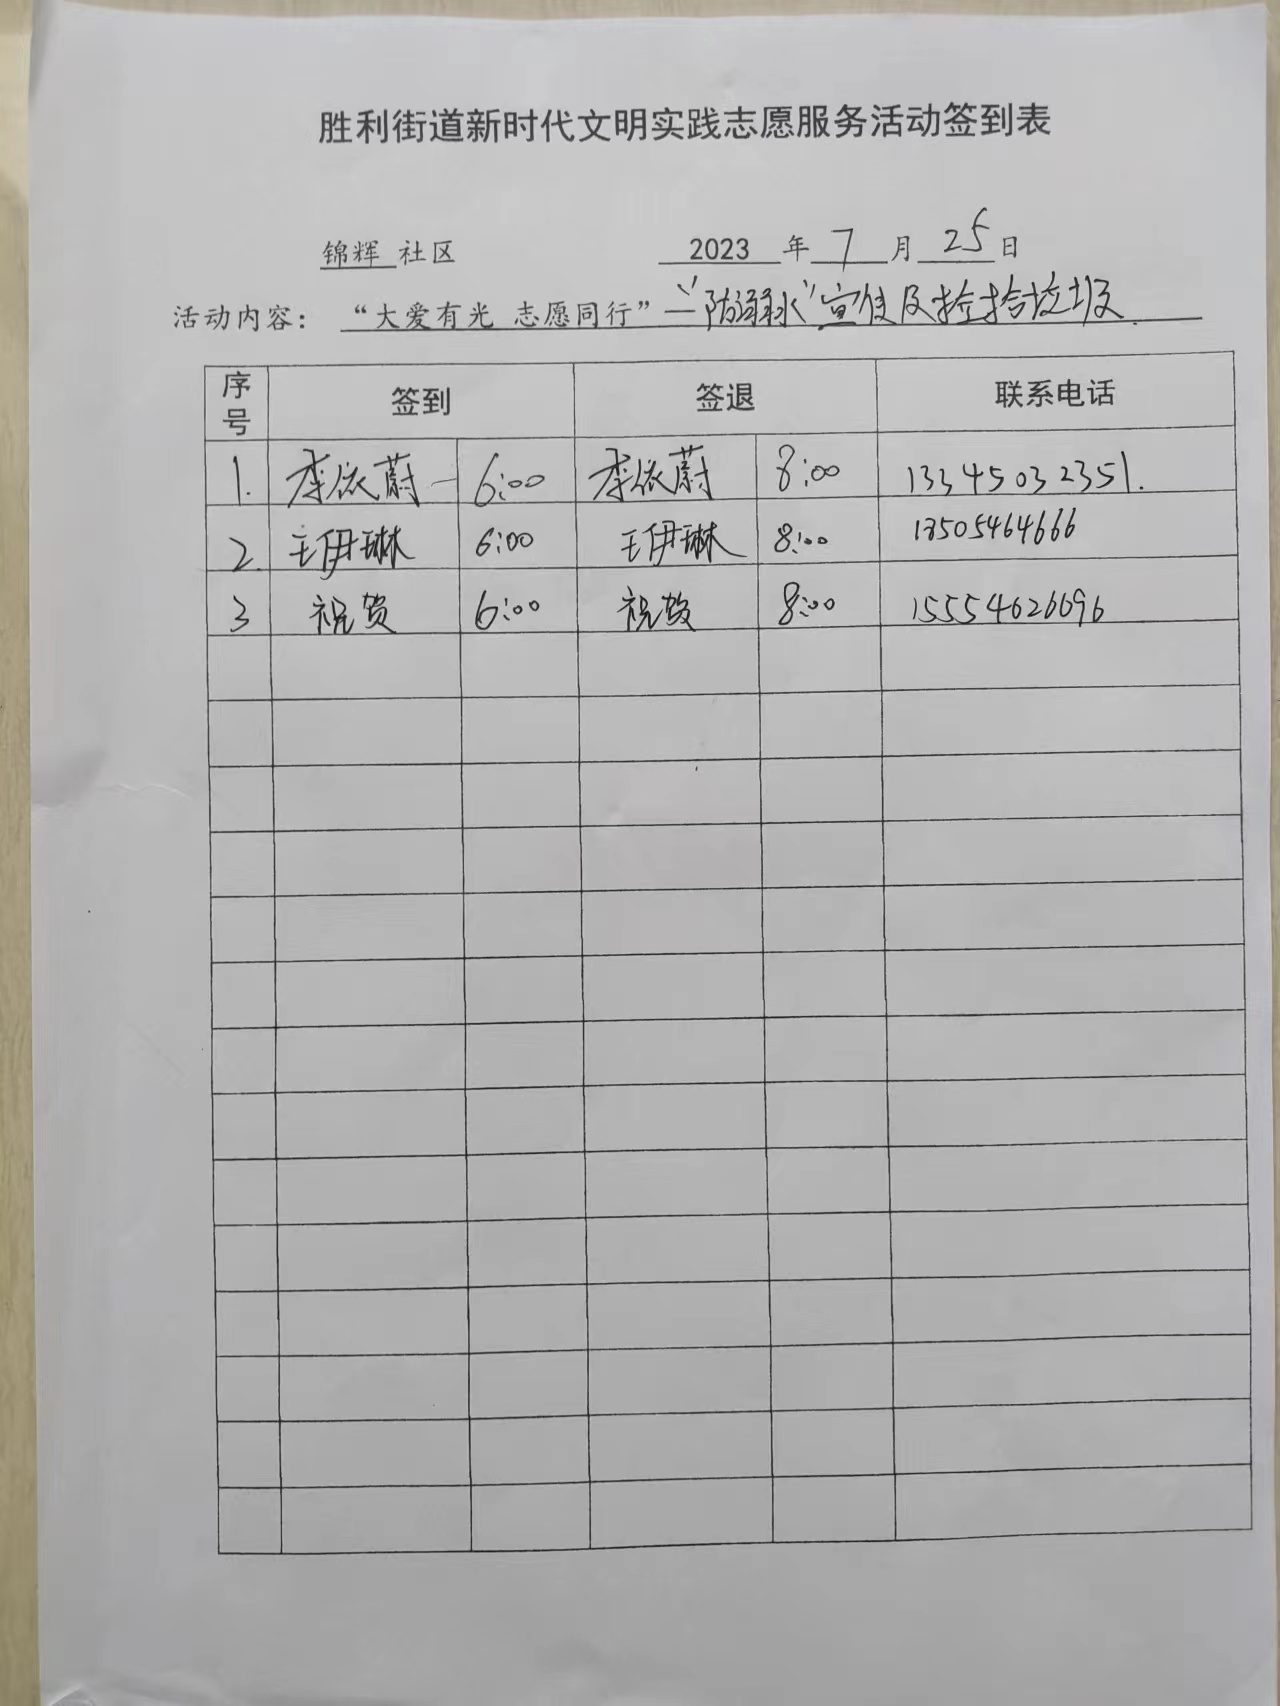 胜利街道新时代文明实践志愿服务活动签到表
锦辉 社区 2023 年 7 月 25 日
活动内容: “大爱有光 志愿同行”—“防溺水”宣传及捡拾垃圾.
序号 签到 签退 联系电话
1. 李依蔚 6:00 李依蔚 8:00 13345032351.
2. 王伊琳 6:00 王伊琳 8:00 13505464666
3 祝贺 6:00 祝贺 8:00 15554626696